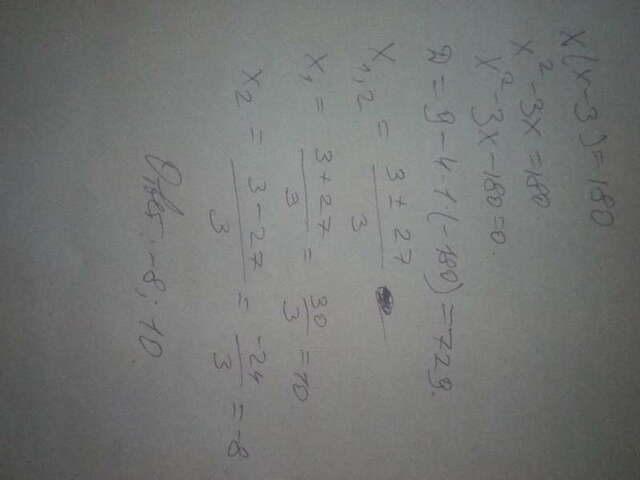 x(x-3)=180
x²-3x=180.
x²-3x-180=0.
D=9-4·1(-180)=729.
x1,2 = 3±27/3
x1 = 3+27/3 = 30/3 = 10
x2 = 3-27/3 = -24/3 = -8
Ответ: -8; 10.